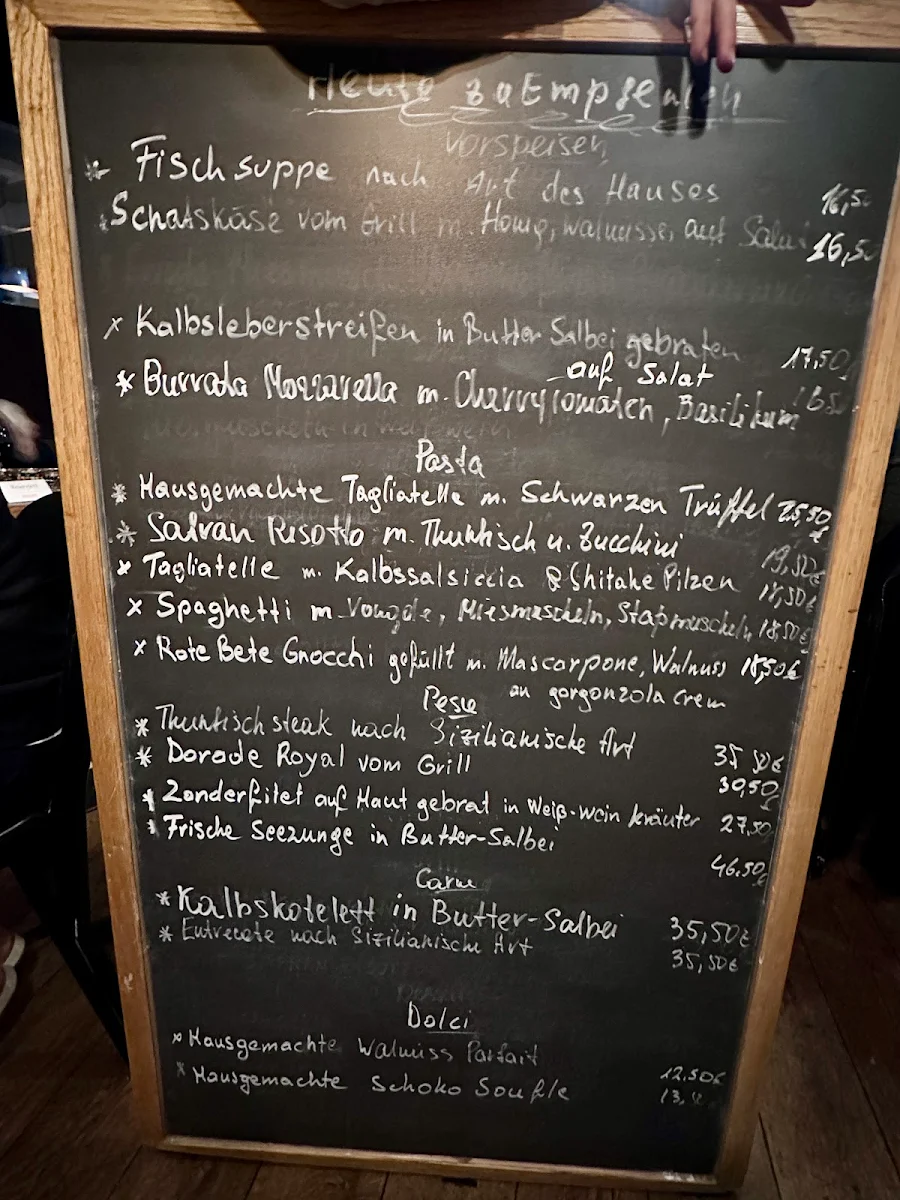 Heute zu Empfehlen
Vorspeisen
* Fischsuppe nach Art des Hauses 16,50
* Schafskäse vom Grill m. Honig, Walnüsse, auf Salat 16,50
x Kalbsleberstreifen in Butter Salbei gebraten 17,50
auf Salat
* Burrata Mozzarella m. Charrytomaten, Basilikum 16,50
Pasta
* Hausgemachte Tagliatelle m. Schwarzen Trüffel 25,50
* Safran Risotto m. Thunfisch u. Zucchini 19,50€
x Tagliatelle m. Kalbssalsiccia & Shitake Pilzen 18,50€
x Spaghetti m. Vongole, Miesmuscheln, 18,50€
x Rote Bete Gnocchi gefüllt m. Mascarpone, Walnuss 18,50€
an gorgonzola Crem
Pesce
* Thunfisch steak nach Sizilianische Art 35,50€
* Dorade Royal vom Grill 30,50€
* Zanderfilet auf Haut gebrat in Weiß-wein kräuter 27,50
* Frische Seezunge in Butter-Salbei 46,50€
Carne
* Kalbskotelett in Butter-Salbei 35,50€
* Entrecote nach Sizilianische Art 35,50€
Dolci
x Hausgemachte Walnuss Parfait 12,50€
x Hausgemachte Schoko Soufle